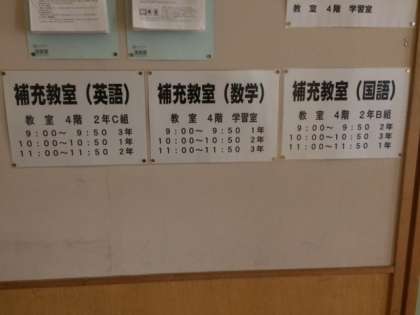 教 室 4階 学習室
補充教室(英語)
教 室 4階 2年C組
9:00〜 9:50 3年
10:00〜10:50 1年
11:00〜11:50 2年
補充教室(数学)
教 室 4階 学習室
9:00〜 9:50 1年
10:00〜10:50 2年
11:00〜11:50 3年
補充教室(国語)
教 室 4階 2年B組
9:00〜 9:50 2年
10:00〜10:50 3年
11:00〜11:50 1年